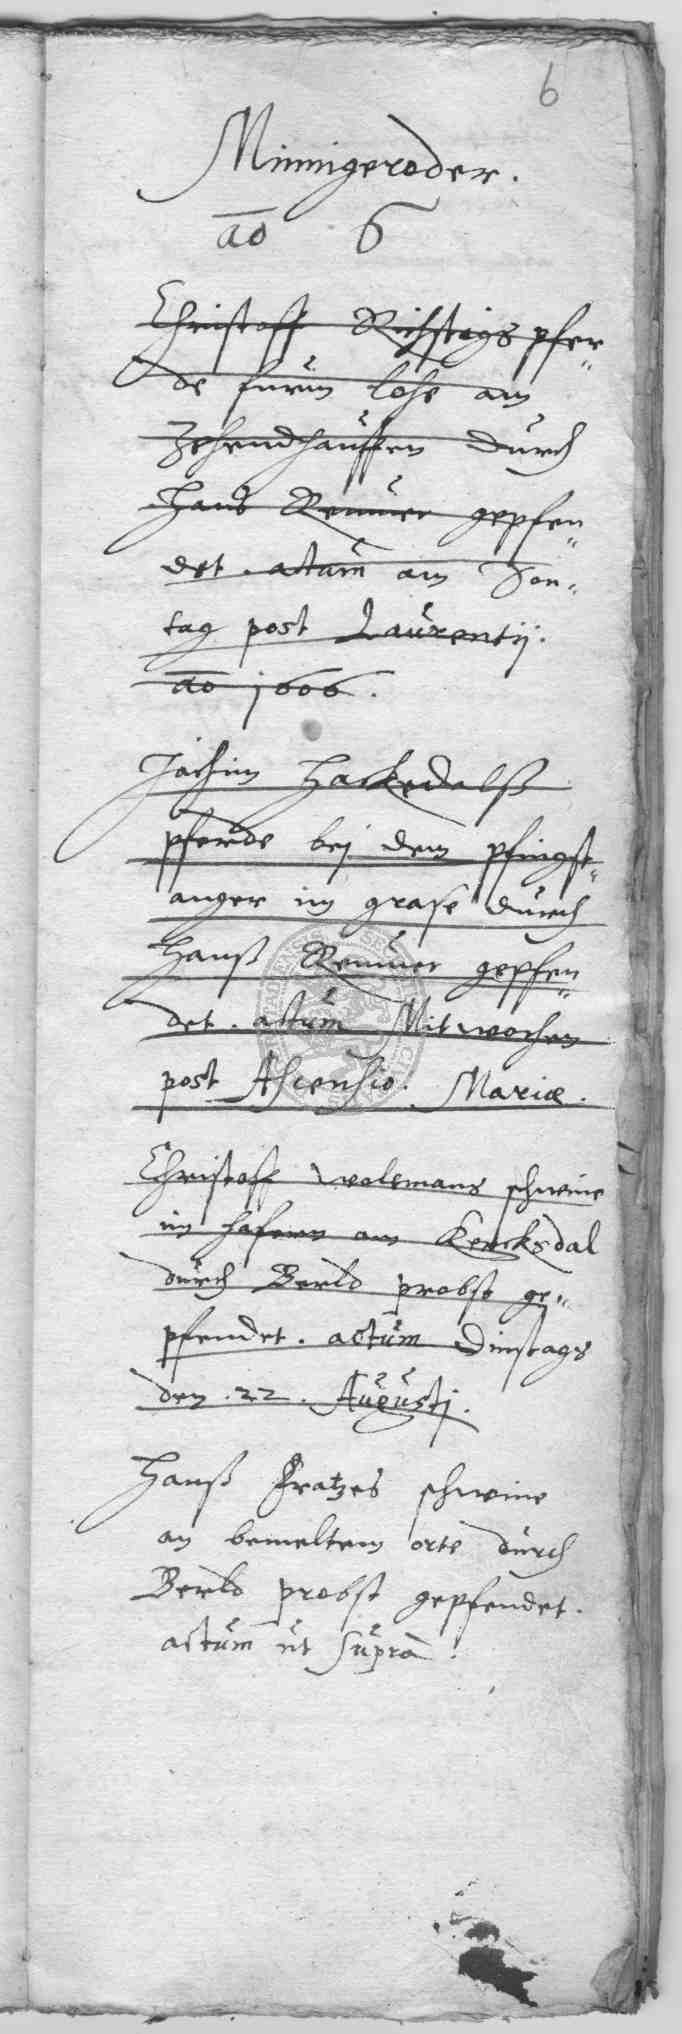 6
Minnigeroder.
ao 6
Christoff Richsteigs pfer„
de furm lohe am
Zehendhauffen durch
Hans Remmer gepfen„
det. actum am Son„
tag post Laurentij.
ao 1606.
Jochim Hackedalß
pferde bej dem pfingst„
anger im grase durch
Hanß Remmer gepfen„
det. actum Mitwochen
post Ascensio. Mariæ.
Christoff Wolemans schweine
im hafern am Kercksdal
durch Berld probst ge„
pfendet. actum Dinstags
den .22. Augustj.
Hanß Fratzes schweine
an bemeltem orte durch
Berld probst gepfendet.
actum ut supra.